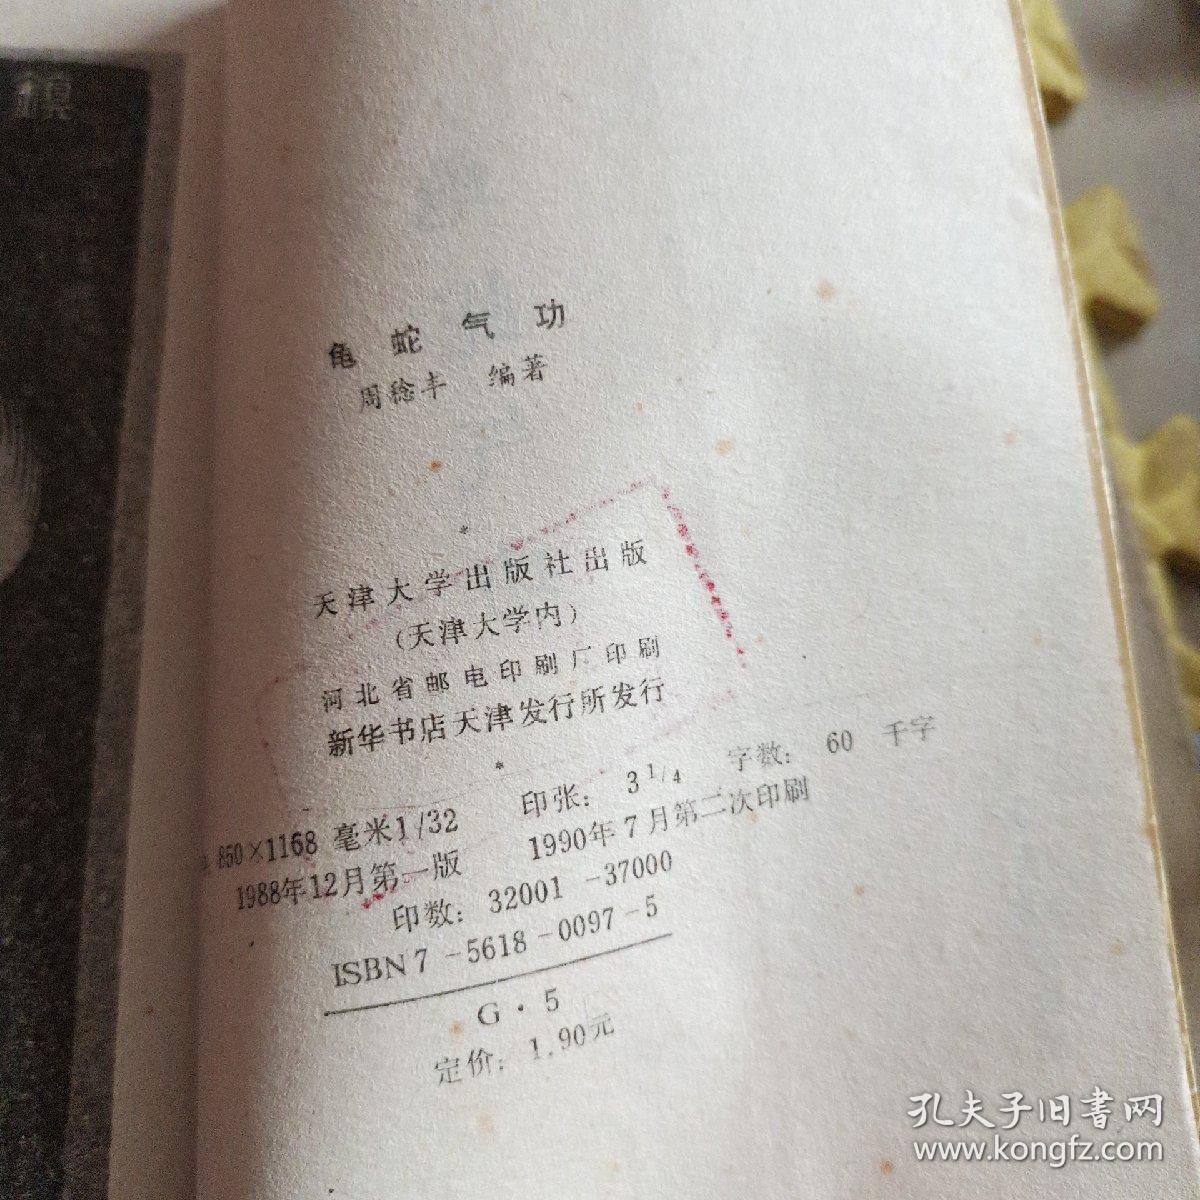 龟蛇气功
周稔丰 编著
*
天津大学出版社出版
(天津大学内)
河北省邮电印刷厂印刷
新华书店天津发行所发行
*
850×1168 毫米1/32 印张：3 1/4 字数：60 千字
1988年12月第一版 1990年7月第二次印刷
印数：32001-37000
ISBN 7-5618-0097-5
G·5
定价：1.90元
孔夫子旧书网
www.kongfz.com